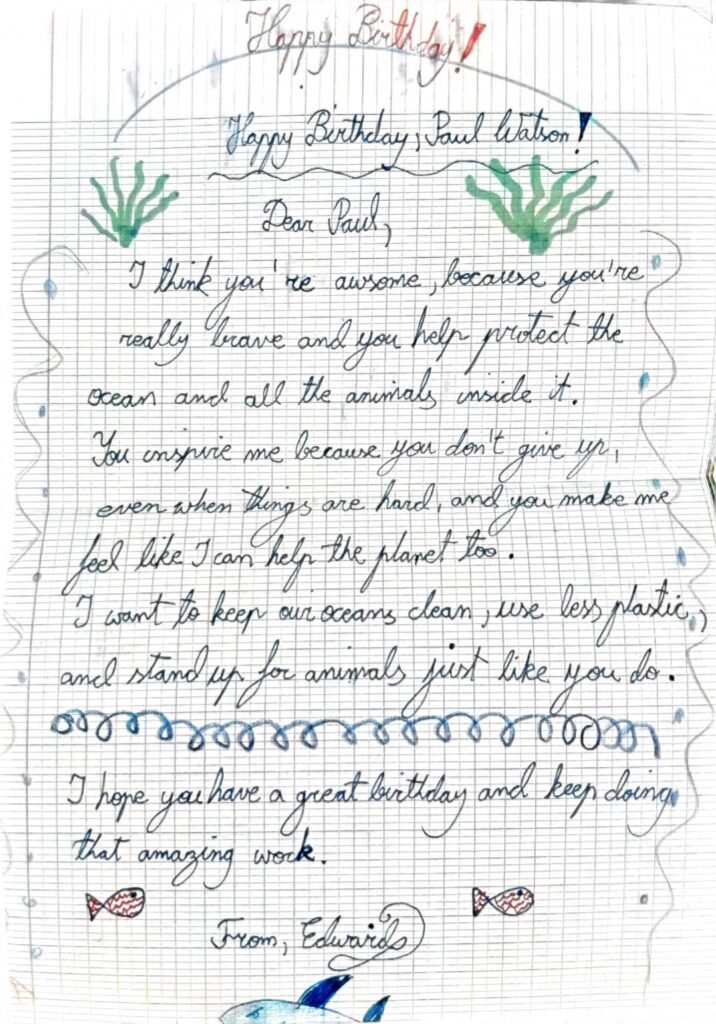 Happy Birthday!
Happy Birthday, Paul Watson!
Dear Paul,
I think you're awsome, because you're
really brave and you help protect the
ocean and all the animals inside it.
You inspire me because you don't give up,
even when things are hard, and you make me
feel like I can help the planet too.
I want to keep our oceans clean, use less plastic,
and stand up for animals just like you do.
I hope you have a great birthday and keep doing
that amazing work.
From, Edwards